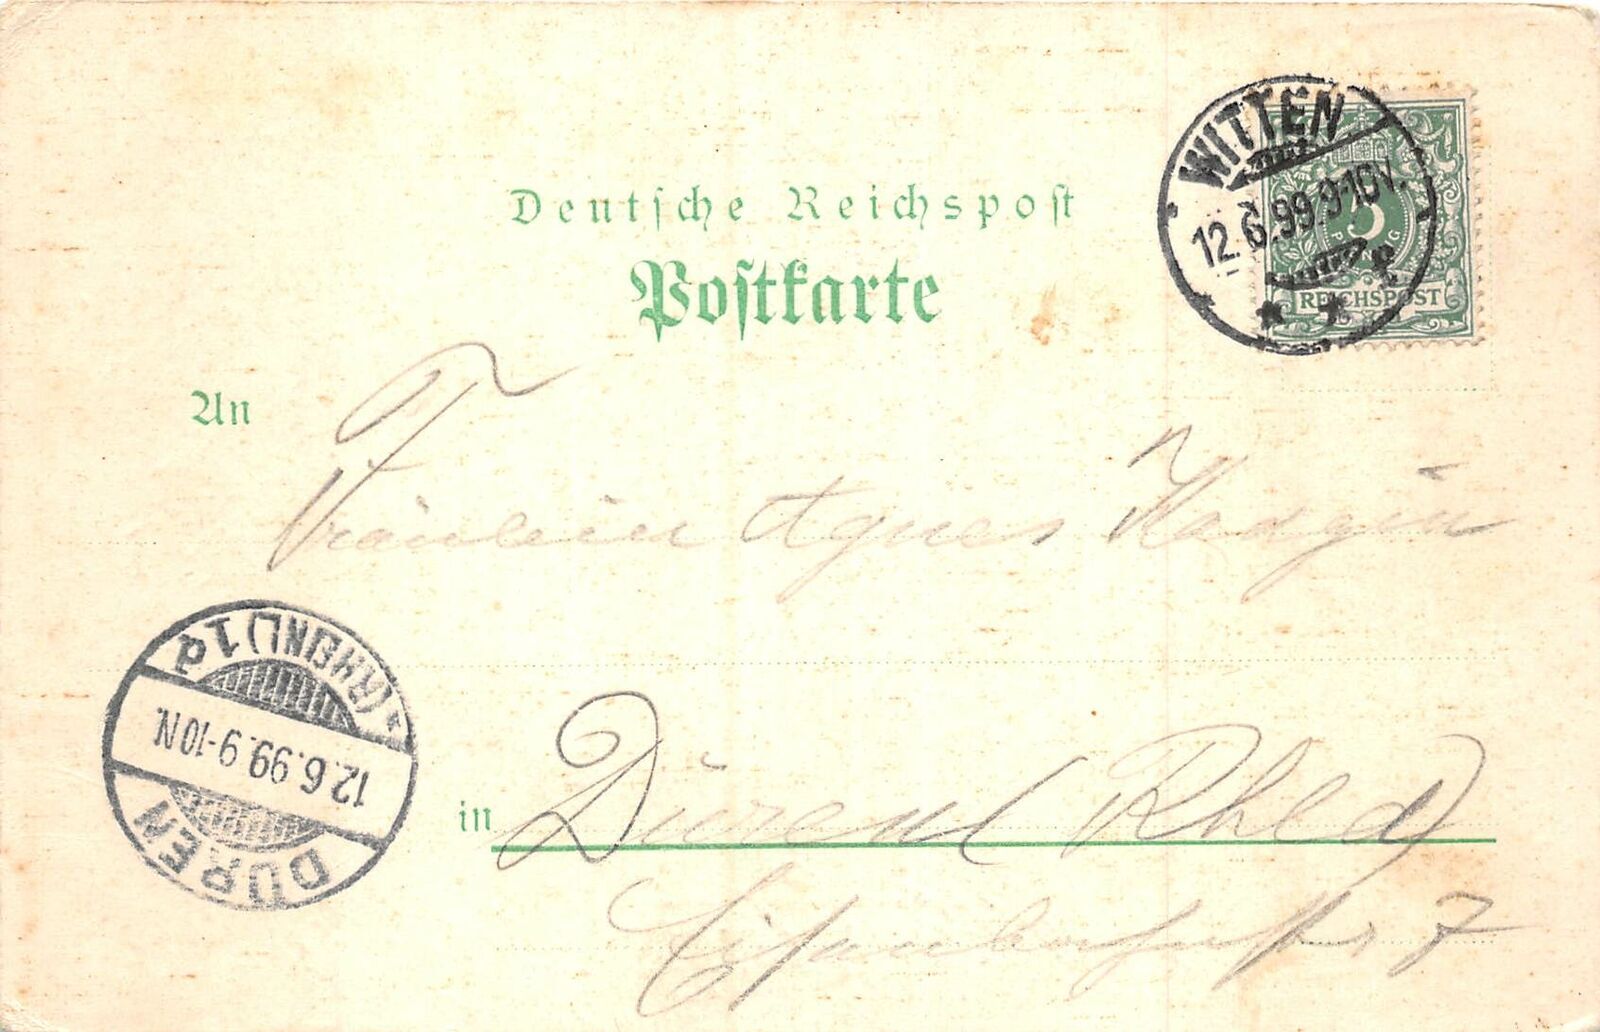 Deutsche Reichspost
Postkarte
WITTEN
12.6.99.9-10V.
5
REICHSPOST
An
Fräulein Agnes
(RHEINL) 1d
12.6.99.9-10N.
DÜREN
in Düren (Rhld)
7